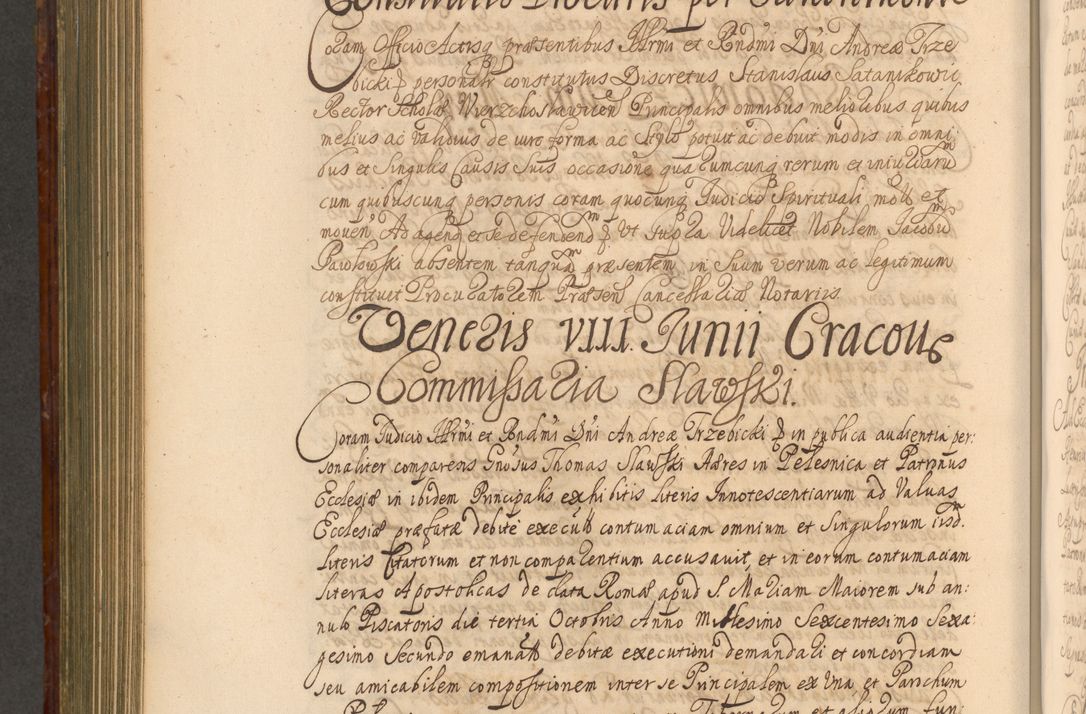 Coram Officio Actisq præsentibus Illrmi et Rndmi Dni Andreæ Trze
bicki personalr constitutus Discretus Stanislaus Satanikowic
Rector Scholæ Wierzchoslavicen Principalis omnibus melioribus quibus
melius ac validius de iure forma ac stylo potuit ac debuit modis in omni
bus et Singulis Causis Suis, occasione quarumcunq rerum et iniuriaru
cum quibuscunq personis coram quocunq Iudicio Spirituali mot et
moven Ad agend et se defendend Ut supra Videlicet Nobilem Jacobu
Pawlowski absentem tanqua præsentem in Suum verum ac legitimum
constituit Procuratorem Præsen Cancellariæ Notarius
Veneris VIII. Junii Cracoviæ
Commissaria Slawski.
Coram Iudicio Illrmi et Rndmi Dni Andreæ Trzebicki in publica audientia per:
sonaliter comparens Gnosus Thomas Slawski Hæres in Pelesnica et Patronus
Ecclesiæ in ibidem Principalis exhibitis literis Innotescentiarum ad Valvas
Ecclesiæ præfatæ debite execut contumaciam omnium et singulorum iisd.
literis Citatorum et non comparentium accusavit et in eorum contumaciam
literas Apostolicas de data Romæ apud S. Mariam Maiorem sub an:
nulo Piscatoris die tertia Octobris Anno Millesimo Sexcentesimo Sexa:
gesimo Secundo emanat debitæ executioni demandari et concordiam
seu amicabilem compositionem inter se Principalem ex Una et Parochum